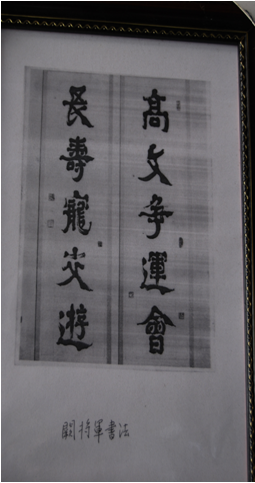 高文争運會
長壽寵交遊
闞將軍書法